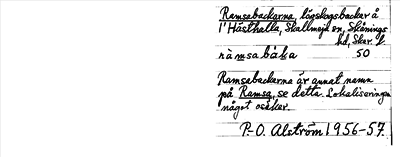 Ramsabackarna, lågskogsbackar å
l' Hästhalla, Skallmeja sn, Skånings
hd, Skar. l.
ràmsabáka 50
Ramsabackarna är annat namn
på Ramsa, se detta. Lokaliseringen
något osäker.
P.-O. Alström 1956-57.